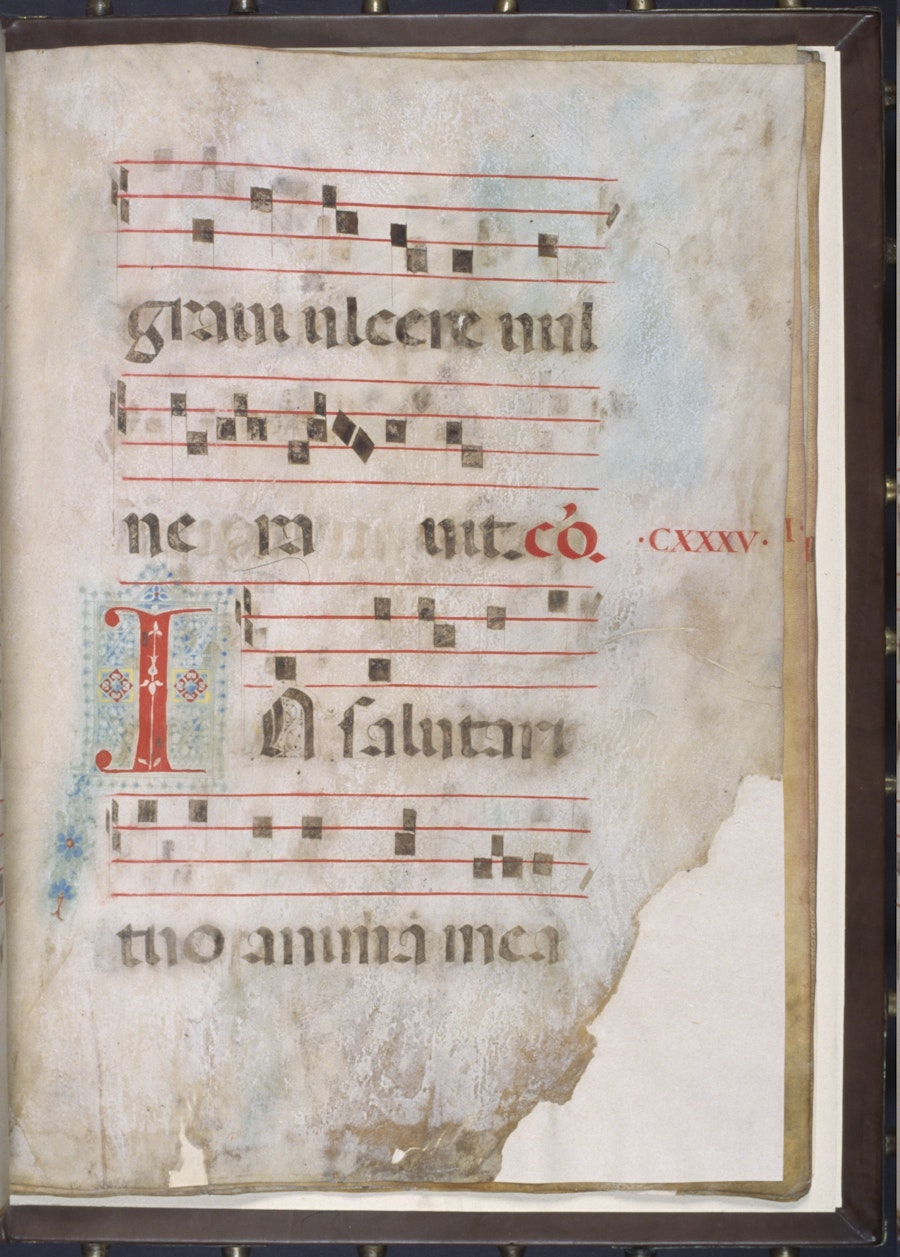 graui ulcere uul
ne ra uit. cō. ·CXXXV·
IN salutari
tuo anima mea